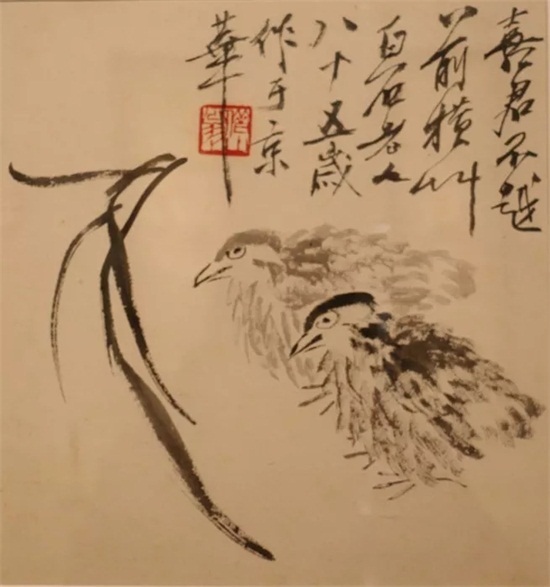 喜君不越
前横艸
白石老人
八十五歲
作于京
華